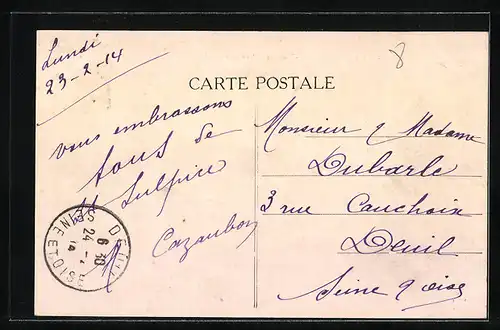 Lundi
23-2-14
8
CARTE POSTALE
vous embrassons
tous de
St Sulpice
Cazaubon
Monsieur & Madame
Dubarle
3 rue Cauchoix
Deuil
Seine & oise
DEUIL
6 30
24
14
SEINE ET OISE